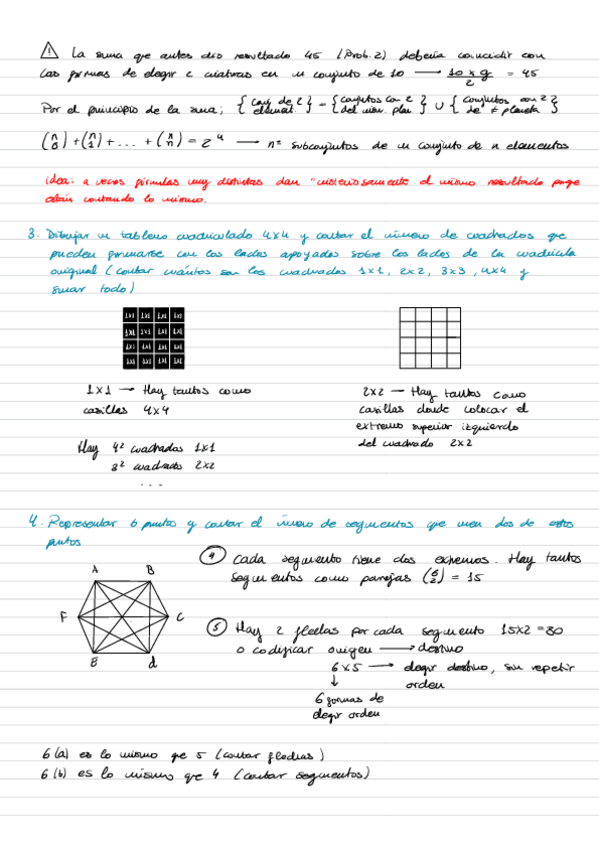 ⚠ La suma que antes dio resultado 45 (Prob. 2) debería coincidir con
las formas de elegir 2 criaturas en un conjunto de 10 → 10 x 9 / 2 = 45
Por el principio de la suma; { conj de 2 element. } = { conjuntos con 2 del mismo plan } ∪ { conjuntos con 2 de ≠ planeta }
(n 0) + (n 1) + ... + (n n) = 2^n → nº subconjuntos de un conjunto de n elementos
idea: a veces fórmulas muy distintas dan "misteriosamente el mismo resultado porque
están contando lo mismo.
3. Dibujar un tablero cuadriculado 4x4 y contar el número de cuadrados que
pueden formarse con los lados apoyados sobre los lados de la cuadrícula
original (contar cuántos son los cuadrados 1x1, 2x2, 3x3, 4x4 y
sumar todo)
1x1 1x1 1x1 1x1
1x1 1x1 1x1 1x1
1x1 1x1 1x1 1x1
1x1 1x1 1x1 1x1
1x1 → Hay tantos como
casillas 4x4
Hay 4² cuadrados 1x1
3² cuadrado 2x2
...
2x2 → Hay tantos como
casillas donde colocar el
extremo superior izquierdo
del cuadrado 2x2
4. Representar 6 puntos y contar el número de segmentos que unen dos de estos
puntos
A B
F C
E d
④ Cada segmento tiene dos extremos. Hay tantos
segmentos como parejas (6 2) = 15
⑤ Hay 2 flechas por cada segmento 15x2 = 30
o codificar origen → destino
6 x 5 → elegir destino, sin repetir
orden
↓
6 formas de
elegir orden
6 (a) es lo mismo que 5 (contar flechas)
6 (b) es lo mismo que 4 (contar segmentos)